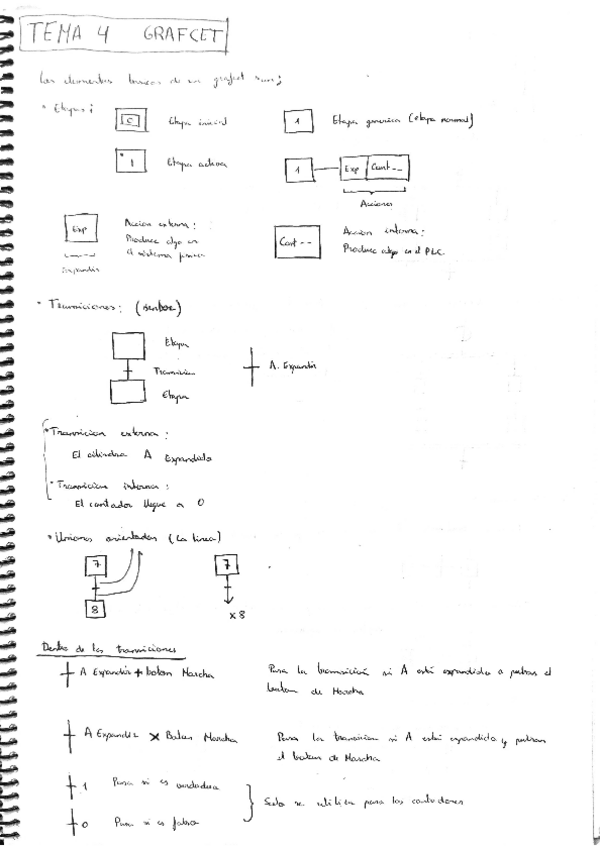 TEMA 4 GRAFCET
Los elementos basicos de un grafcet son:
• Etapas:
0 Etapa inicial
1 Etapa generica (etapa normal)
1 Etapa activa
1 Exp Cont--
Acciones
Exp
Accion externa:
Produce algo en
el sistema
Expandir
Cont--
Accion interna:
Produce algo en el PLC
• Transiciones: (sensor)
Etapa
Transicion
Etapa
A. Expandir
• Transicion externa:
El cilindro A Expandido
• Transicion interna:
El contador llegue a 0
• Uniones orientadas (La linea)
7
8
7
x8
Dentro de las transiciones
A Expandir + boton Marcha
Pasa la transicion si A está expandido o pulsas el
boton de Marcha
A Expandir x Boton Marcha
Pasa la transicion si A está expandido y pulsas
el boton de Marcha
1 Pasa si es verdadera
0 Pasa si es falso
Solo se utiliza para los contadores